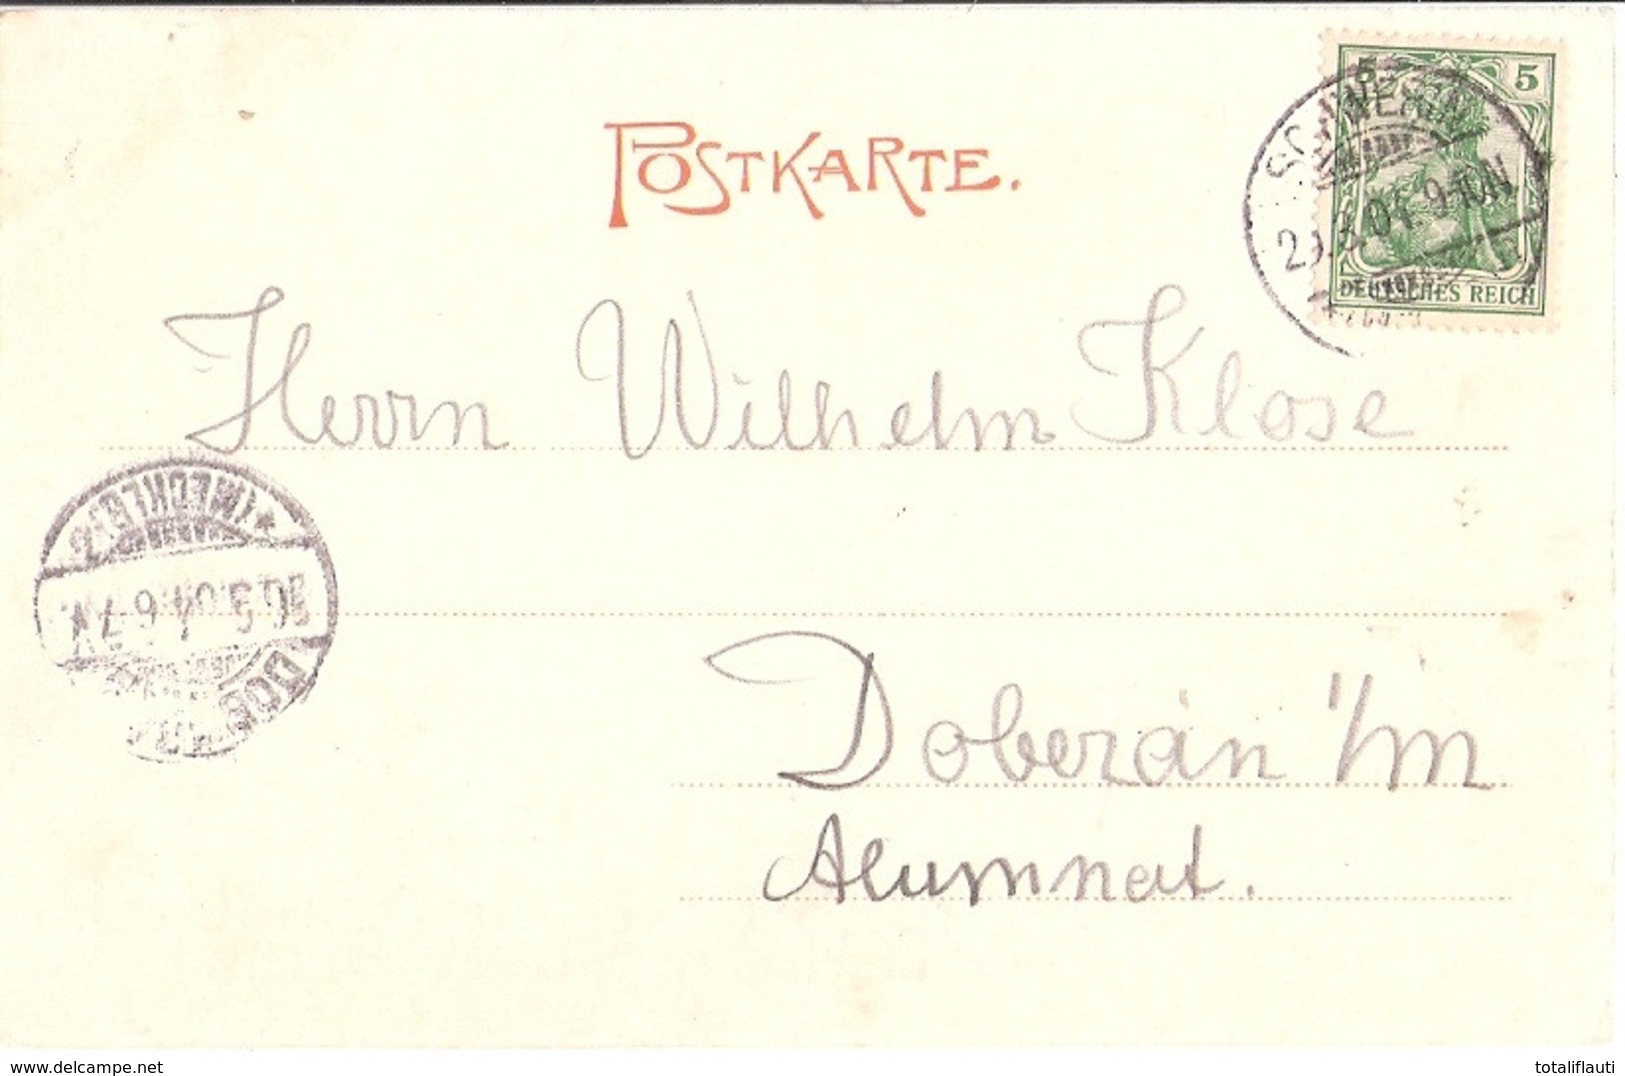 POSTKARTE.
5 5
DEUTSCHES REICH
SCHWERIN
29.3.04. 9-10N
Herrn Wilhelm Klose
(MECKLB)
30.3.04. 6-7N.
DOBERAN
Doberan i/m
Alumnat.
www.delcampe.net
totaliflauti